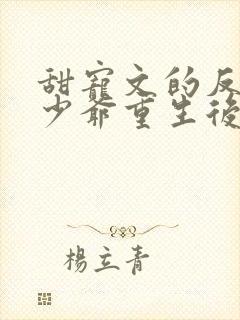 甜寵文的反
少爺重生後
楊立青